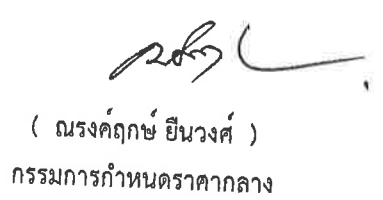 ( ณรงค์ฤกษ์ ยืนวงศ์ )
กรรมการกำหนดราคากลาง